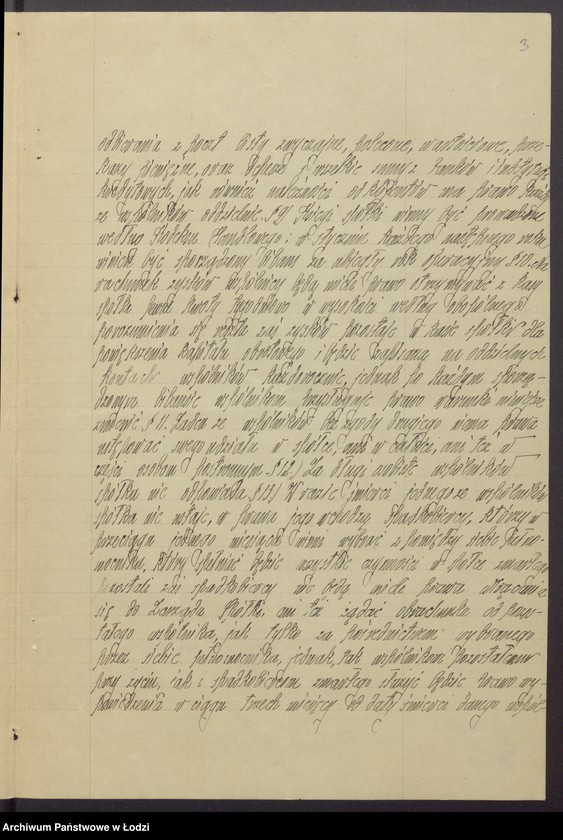 3
odbierania z poczt listy zwyczajne, polecone, wartościowe, prze-
kazy pieniężne, oraz depesze i wszelkie sumy z banków i instytucji
kredytowych, jak również należności od klientów ma prawo każdy
ze wspólników oddzielnie. § 9) Księgi spółki winny być prowadzone
według Kodeksu Handlowego; w styczniu każdego następnego roku
winien być sporządzony bilans za ubiegły rok operacyjny § 10. Na
rachunek zysków wspólnicy będą mieli prawo otrzymywać z kasy
spółki pewne kwoty tygodniowo w wysokości według obopólnego
porozumienia się reszta zaś zysków pozostaje w kasie spółki dla
powiększenia kapitału obrotowego i będzie zapisaną na oddzielnych
kontach wspólników każdorocznie, jednak po każdym sporzą-
dzonym bilansie wspólnikom przysługuje prawo warunki niniejsze
zmienić. § 11. Żaden ze wspólników bez zgody drugiego niema prawa
ustępować swego udziału w spółce, ani w całości, ani też w
części osobom postronnym. § 12.) Za długi osobiste wspólników
spółka nie odpowiada. § 13) W razie śmierci jednego ze wspólników
spółka nie ustaje, w prawa jego wchodzą spadkobiercy, którzy w
przeciągu jednego miesiąca winni wybrać z pomiędzy siebie pełno-
mocnika, który spełniać będzie wszystkie czynności w spółce zmarłego
pozostali zaś spadkobiercy nie będą mieli prawa wtrącania
się do Zarządu Spółki, ani też żądać obrachunku od pozo-
stałego wspólnika, jak tylko za pośrednictwem wybranego
przez siebie pełnomocnika, jednak, tak wspólnikowi pozostałemu
przy życiu, jak i spadkobiercom zmarłego służyć będzie prawo wy-
powiedzenia w ciągu trzech miesięcy od daty śmierci danego wspól-
Archiwum Państwowe w Łodzi